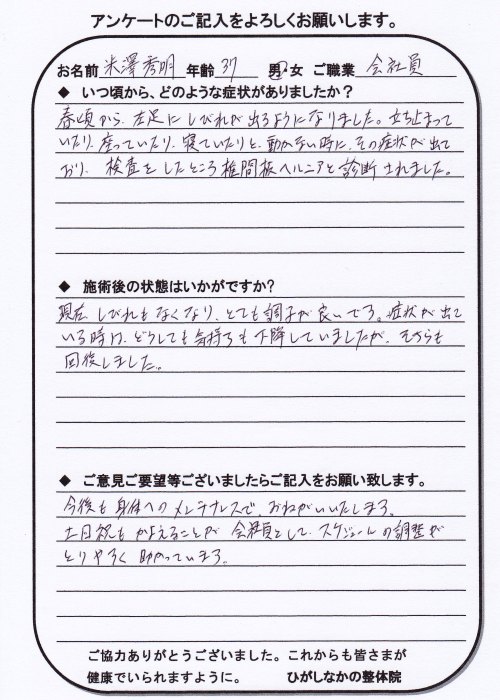 アンケートのご記入をよろしくお願いします。
お名前 米澤秀明 年齢 37 男・女 ご職業 会社員
◆ いつ頃から、どのような症状がありましたか？
春頃から、左足にしびれが出るようになりました。立ち止まって
いたり、座っていたり、寝ていたりと、動かない時に、その症状が出て
おり、検査をしたところ椎間板ヘルニアと診断されました。
◆ 施術後の状態はいかがですか？
現在、しびれもなくなり、とても調子が良いです。症状が出て
いる時は、どうしても気持ちも下降していましたが、そちらも
回復しました。
◆ ご意見ご要望等ございましたらご記入をお願い致します。
今後も身体へのメンテナンスで、おねがいいたします。
土日祝もかよえることが会社員として、スケジュールの調整が
とりやすく助かっています。
ご協力ありがとうございました。これからも皆さまが
健康でいられますように。 ひがしなかの整体院